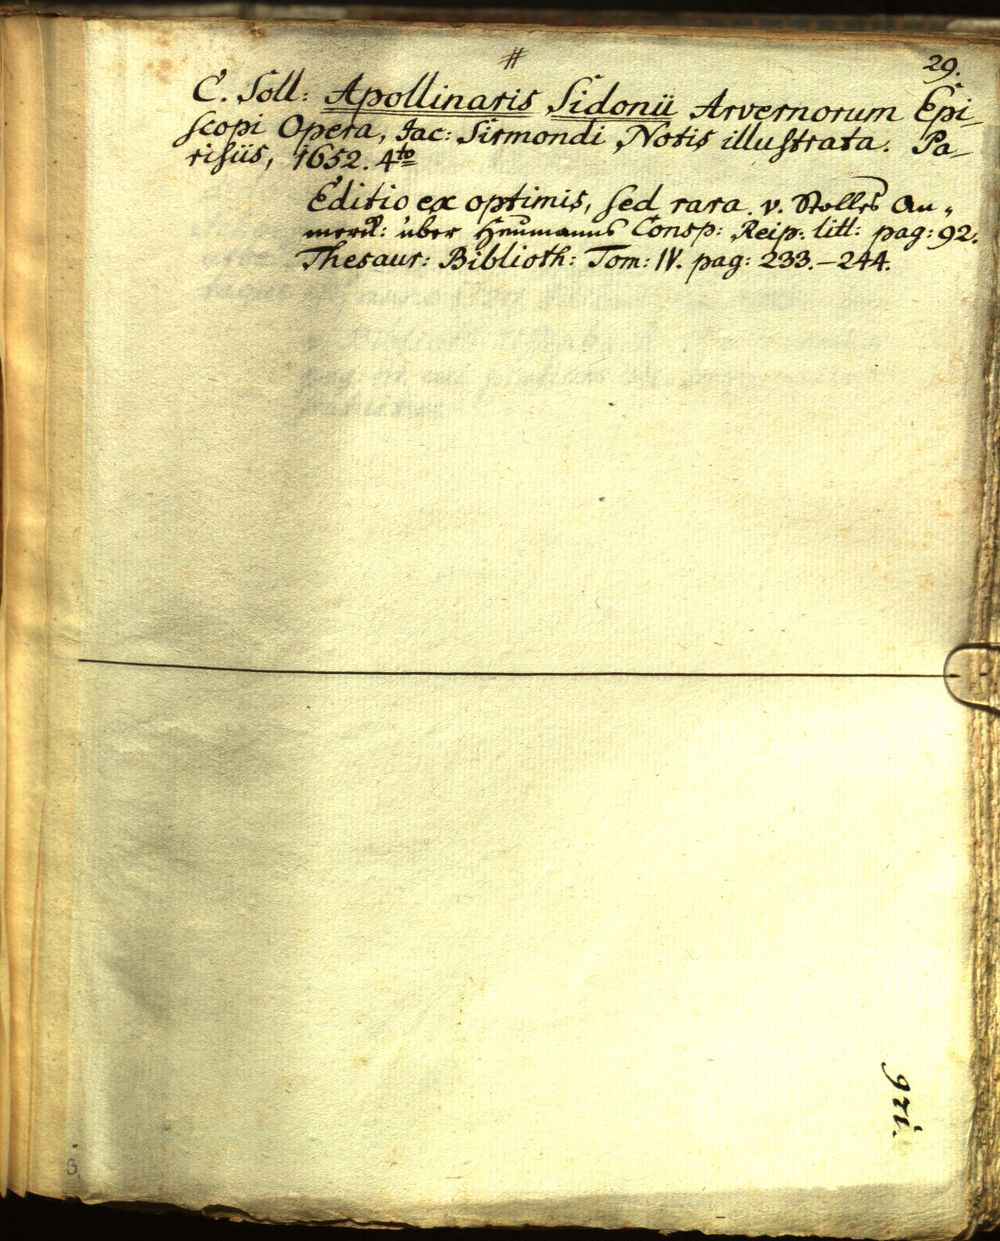 #
29.
C. Soll: Apollinaris Sidonii Arvernorum Epi-
scopi Opera, Jac: Sirmondi, Notis illustrata. Pa-
risiis, 1652. 4to
Editio ex optimis, sed rara. v. Stolles An-
merck: über Heumanns Consp: Reip: litt: pag: 92.
Thesaur: Biblioth: Tom: IV. pag: 233.–244.
921.